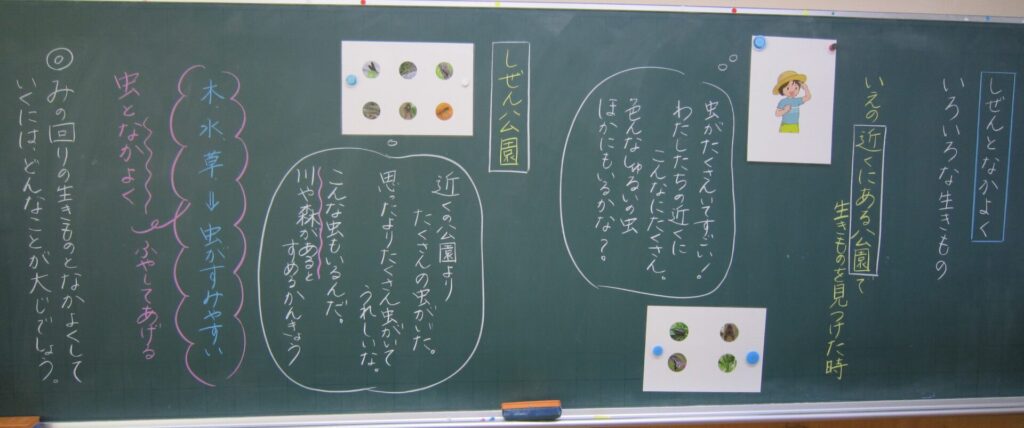 しぜんとなかよく
いろいろな生きもの
いえの近くにある公園で
生きものを見つけた時
虫がたくさんいてすごい!
わたしたちの近くに
こんなにたくさん。
色んなしゅるいの虫
ほかにもいるかな?
しぜん公園
近くの公園より
たくさんの虫がいた。
思ったよりたくさん虫がいて
うれしいな。
こんな虫もいるんだ。
川や森があると
すめるかんきょう
木・水・草⇓虫がすみやすい
虫となかよく
ふやしてあげる
◎みの回りの生きものとなかよくして
いくには、どんなことが大じでしょう。